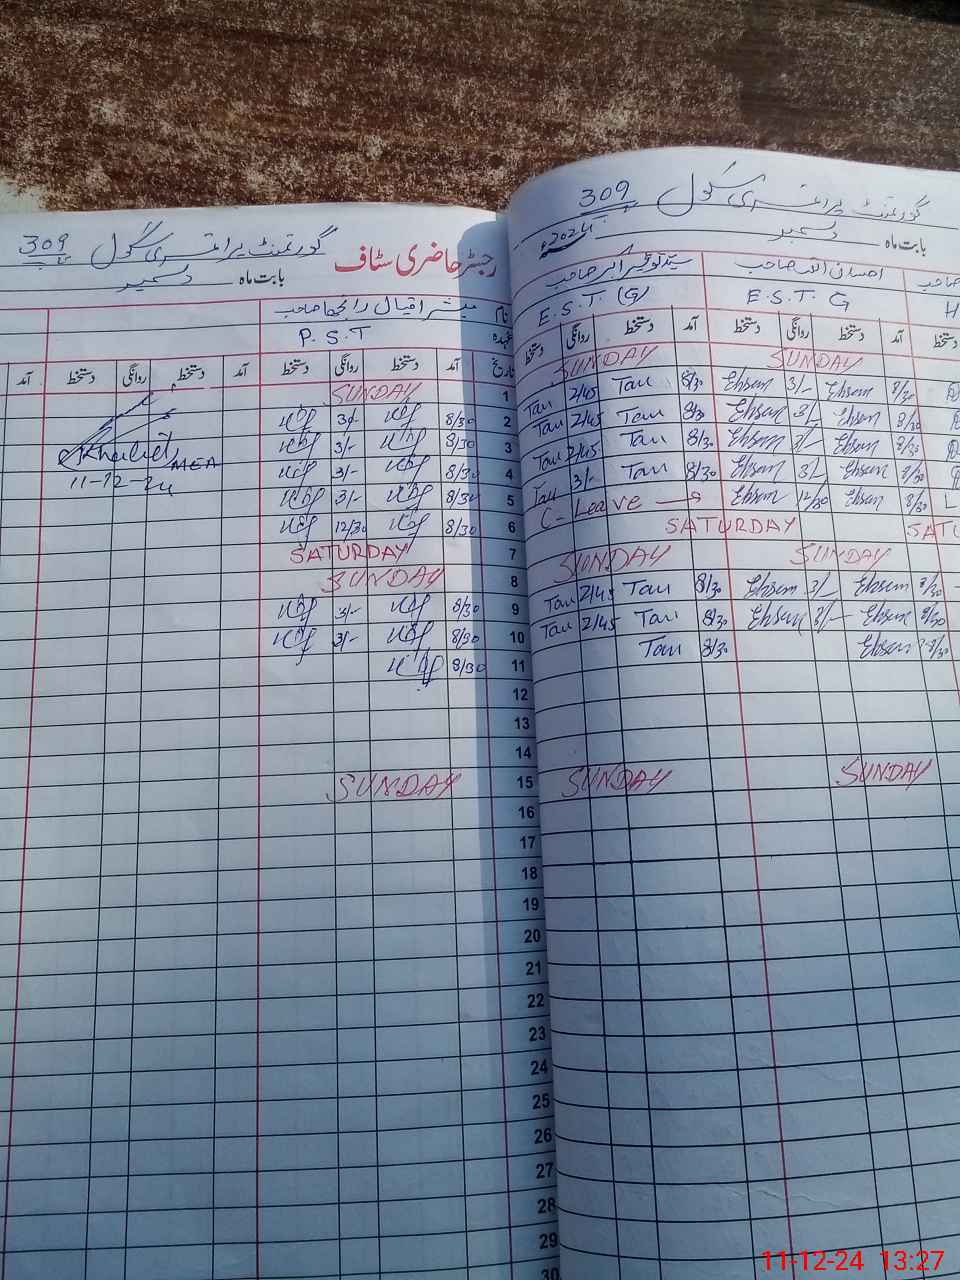 گورنمنٹ پرائمری سکول 309
رجسٹر حاضری سٹاف
بابت ماہ دسمبر
نام مبشر اقبال رانجھا صاحب
عہدہ P.S.T
تاریخ آمد دستخط روانگی دستخط آمد دستخط روانگی دستخط آمد
1 SUNDAY
2 8/30 3/-
3 8/30 3/-
4 8/30 3/-
5 8/30 3/-
6 8/30 12/30
7 SATURDAY
8 SUNDAY
9 8/30 3/-
10 8/30 3/-
11 8/30
12
13
14
15 SUNDAY
16
17
18
19
20
21
22
23
24
25
26
27
28
29
30
Khalid
MEA
11-12-24
گورنمنٹ پرائمری سکول 309
بابت ماہ دسمبر 2024ء
صاحب احسان اللہ صاحب صاحب
H E.S.T. G E.S.T. (G)
دستخط آمد دستخط روانگی دستخط آمد دستخط روانگی دستخط
SUNDAY SUNDAY
Tau 2/45 Tau 8/30 Ehsan 3/- Ehsan 8/30
Tau 2/45 Tau 8/30 Ehsan 3/- Ehsan 8/30
Tau 2/45 Tau 8/30 Ehsan 3/- Ehsan 8/30
Tau 3/- Tau 8/30 Ehsan 3/- Ehsan 8/30
C-Leave → Ehsan 12/30 Ehsan 8/30
SATURDAY SATU
SUNDAY SUNDAY
Tau 2/45 Tau 8/30 Ehsan 3/- Ehsan 8/30
Tau 2/45 Tau 8/30 Ehsan 3/- Ehsan 8/30
Tau 8/30 Ehsan 8/30
SUNDAY SUNDAY
11-12-24 13:27